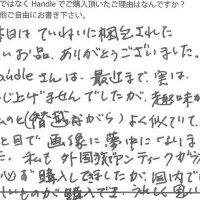 ではなく Handle でご購入頂いたご理由はなんですか？
他ご自由にお書き下さい。
本日は ていねいに梱包された
いお品、ありがとうございました。
andle さんは、最近まで、実は、
じ上げませんでしたが、趣味が
のと(僭越ながら) よく似ていて、
と目で画像に夢中になりま
た。私も外国旅でアンティークから
必ず購入してきましたが、国内で
いものが購入でき、うれしく思い